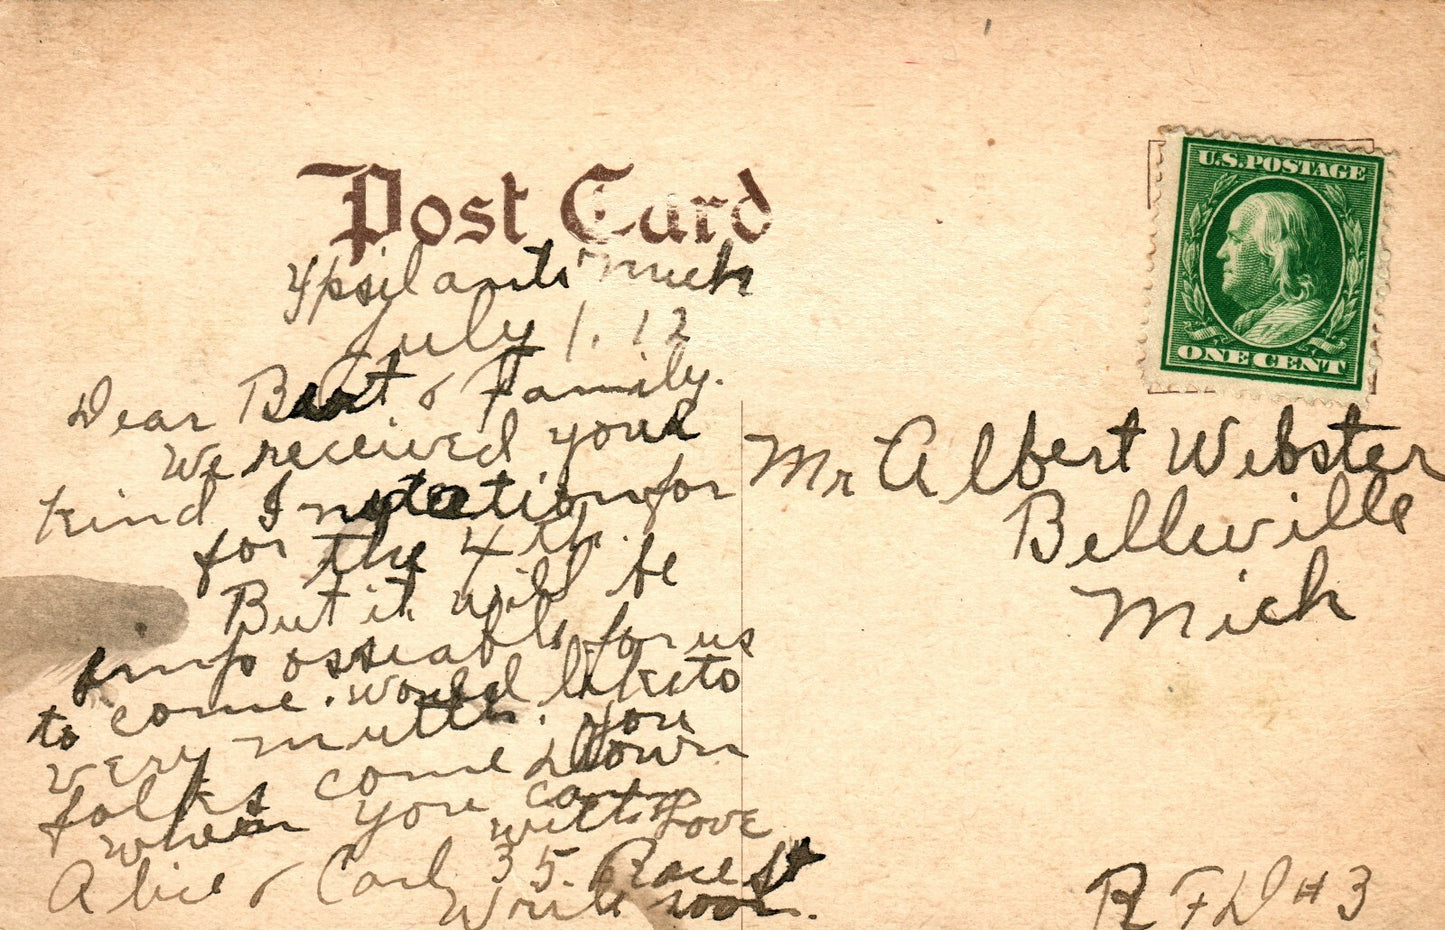 Post Card
U.S. POSTAGE
ONE CENT
Ypsilanti Mich
July 1. 12
Dear Burt & Family.
We received your
kind Invotation for
for the 4 th.
But it will be
impossiable for us
to come. would like to
very mutch. you
folks come down
when you can
with Love
Alice & Carl 35. Race St
Write soon.
Mr Albert Webster
Belleville
Mich
R F D # 3